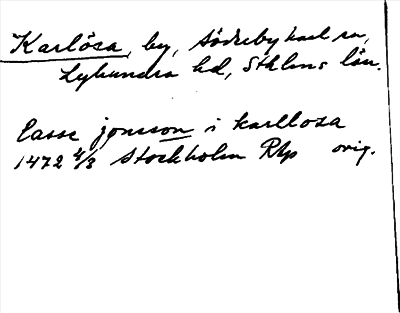 Karlösa, by, Söderby Karl sn,
Lyhundra hd, Sthlms län.
Lasse jonsson i karllosa
1472 4/3 Stockholm RAp orig.